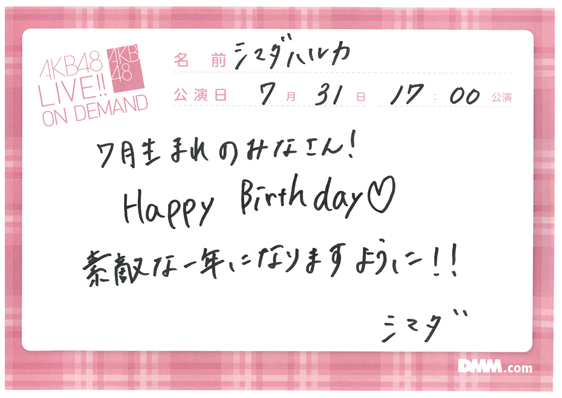 AKB48
LIVE!!
ON DEMAND
AKB
48
名 前 シマダハルカ
公演日 7 月 31 日 17 : 00 公演
7月生まれのみなさん!
Happy Birthday♡
素敵な一年になりますように!!
シマダ
DMM.com